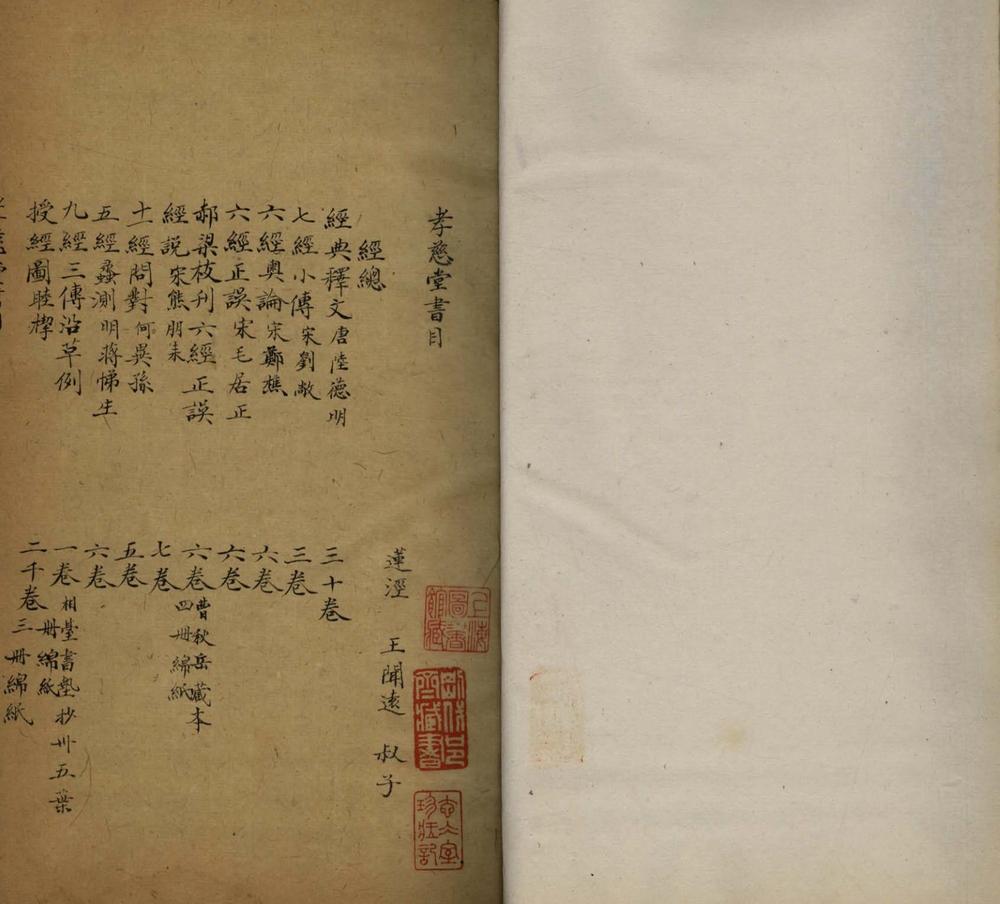 孝慈堂書目
蓮涇 王聞遠 叔子
經總
經典釋文唐陸德明 三十卷
七經小傳宋劉敞 三卷
六經奧論宋鄭樵 六卷
六經正誤宋毛居正 六卷
郝梁校刊六經正誤 六卷曹秋岳藏本四冊綿紙
經說宋熊朋来 七卷
十一經問對何異孫 五卷
五經蠡測明蔣悌生 六卷
九經三傳沿革例 一卷相臺書塾抄卅五葉一冊綿紙
授經圖睦㮮 二十卷三冊綿紙
上海圖書館藏